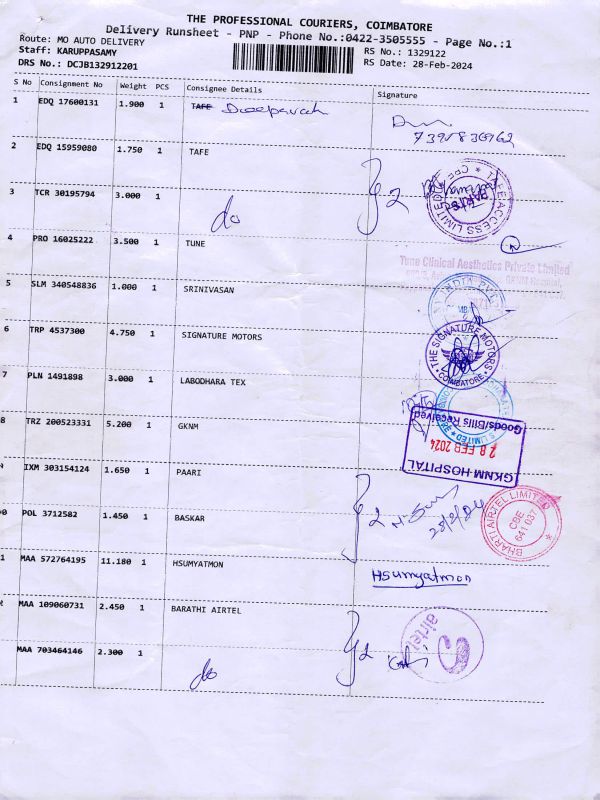 THE PROFESSIONAL COURIERS, COIMBATORE
Delivery Runsheet - PNP - Phone No.:0422-3505555 - Page No.:1
Route: MO AUTO DELIVERY
Staff: KARUPPASAMY
RS No.: 1329122
DRS No.: DCJB132912201
RS Date: 28-Feb-2024
S No Consignment No Weight PCS Consignee Details Signature
1 EDQ 17600131 1.900 1 TAFE Deepavali
7395836962
2 EDQ 15959080 1.750 1 TAFE
2
TAFE ACCESS LIMITED
CBE
PARTS
3 TCR 30195794 3.000 1 do
4 PRO 16025222 3.500 1 TUNE
Tune Clinical Aesthetics Private Limited
GKNM Hospital,
5 SLM 340548836 1.000 1 SRINIVASAN
6 TRP 4537300 4.750 1 SIGNATURE MOTORS
THE SIGNATURE MOTORS
COIMBATORE
7 PLN 1491898 3.000 1 LABODHARA TEX
8 TRZ 200523331 5.200 1 GKNM
Goods/Bills Received
28 FEB 2024
GKNM HOSPITAL
IXM 303154124 1.650 1 PAARI
0 POL 3712582 1.450 1 BASKAR
2
28/2/24
BHARTI AIRTEL LIMITED
CBE
641 037
1 MAA 572764195 11.180 1 HSUMYATMON
Hsumyatmon
MAA 109060731 2.450 1 BARATHI AIRTEL
2
airtel
MAA 703464146 2.300 1 do